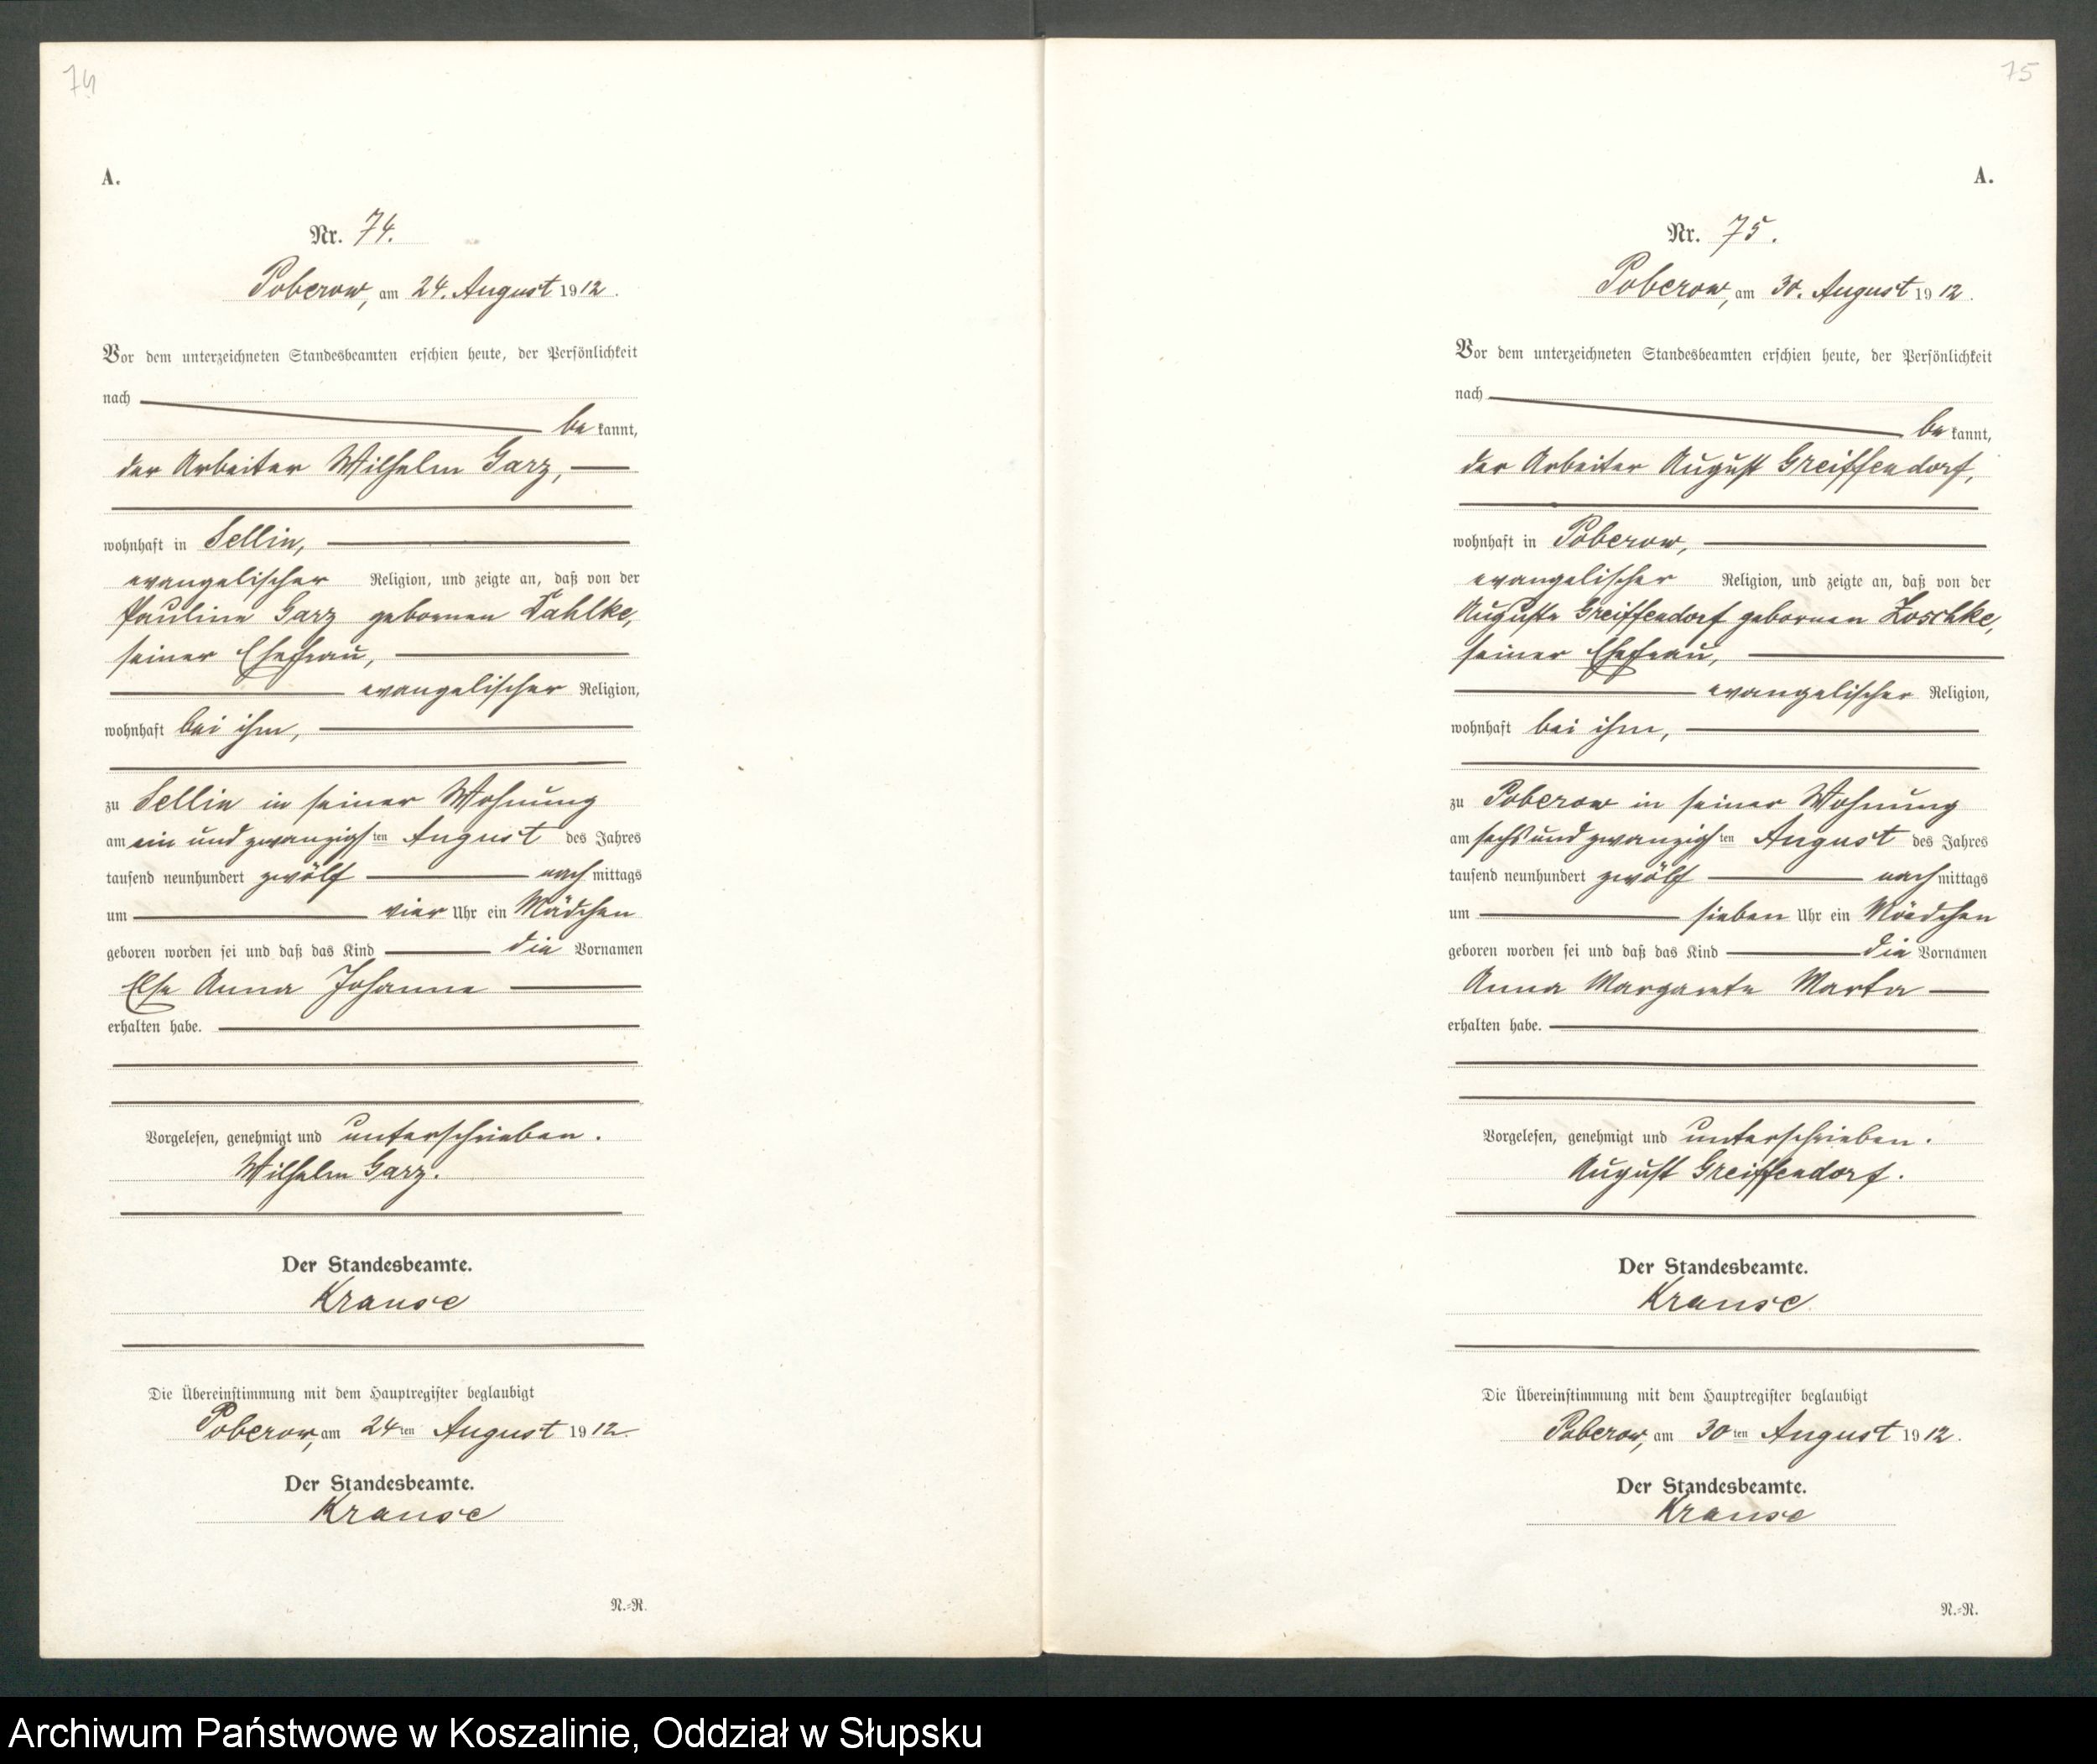 74
A.
Nr. 74.
Poberow, am 24. August 1912.
Vor dem unterzeichneten Standesbeamten erschien heute, der Persönlichkeit
nach
be kannt,
der Arbeiter Wilhelm Garz,
wohnhaft in Sellin,
evangelischer Religion, und zeigte an, daß von der
Pauline Garz gebornen Dahlke,
seiner Ehefrau,
evangelischer Religion,
wohnhaft bei ihm,
zu Sellin in seiner Wohnung
am ein und zwanzigsten August des Jahres
tausend neunhundert zwölf nachmittags
um vier Uhr ein Mädchen
geboren worden sei und daß das Kind die Vornamen
Else Anna Johanna
erhalten habe.
Vorgelesen, genehmigt und unterschrieben.
Wilhelm Garz.
Der Standesbeamte.
Krause
Die Übereinstimmung mit dem Hauptregister beglaubigt
Poberow, am 24ten August 1912.
Der Standesbeamte.
Krause
N.=R.
75
A.
Nr. 75.
Poberow, am 30. August 1912.
Vor dem unterzeichneten Standesbeamten erschien heute, der Persönlichkeit
nach
be kannt,
der Arbeiter August Greiffendorf,
wohnhaft in Poberow,
evangelischer Religion, und zeigte an, daß von der
Auguste Greiffendorf gebornen Zoschke,
seiner Ehefrau,
evangelischer Religion,
wohnhaft bei ihm,
zu Poberow in seiner Wohnung
am sechs und zwanzigsten August des Jahres
tausend neunhundert zwölf nachmittags
um sieben Uhr ein Mädchen
geboren worden sei und daß das Kind die Vornamen
Anna Margarete Marta
erhalten habe.
Vorgelesen, genehmigt und unterschrieben.
August Greiffendorf.
Der Standesbeamte.
Krause
Die Übereinstimmung mit dem Hauptregister beglaubigt
Poberow, am 30ten August 1912.
Der Standesbeamte.
Krause
N.=R.
Archiwum Państwowe w Koszalinie, Oddział w Słupsku